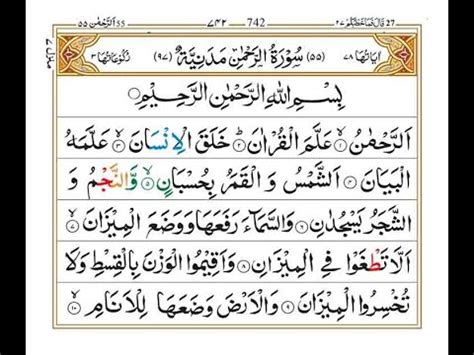 ٥٥ اَلرَّحْمٰن 55 ٧٤٢ 742 27 قَالَ فَمَا خَطْبُكُمْ ٢٧
اٰیَاتُهَا ٧٨ (٥٥) سُوْرَةُ الرَّحْمٰنِ مَدَنِيَّةٌ (٩٧) رُكُوْعَاتُهَا ٣
بِسْمِ اللهِ الرَّحْمٰنِ الرَّحِيْمِ
اَلرَّحْمٰنُ ۙ ١ عَلَّمَ الْقُرْاٰنَ ؕ ٢ خَلَقَ الْاِنْسَانَ ۙ ٣ عَلَّمَهُ
الْبَيَانَ ٤ اَلشَّمْسُ وَ الْقَمَرُ بِحُسْبَانٍ ٥ وَّالنَّجْمُ وَ
الشَّجَرُ يَسْجُدٰنِ ٦ وَالسَّمَآءَ رَفَعَهَا وَوَضَعَ الْمِيْزَانَ ٧
اَلَّا تَطْغَوْا فِي الْمِيْزَانِ ٨ وَاَقِيْمُوا الْوَزْنَ بِالْقِسْطِ وَلَا
تُخْسِرُوا الْمِيْزَانَ ٩ وَالْاَرْضَ وَضَعَهَا لِلْاَنَامِ ١٠